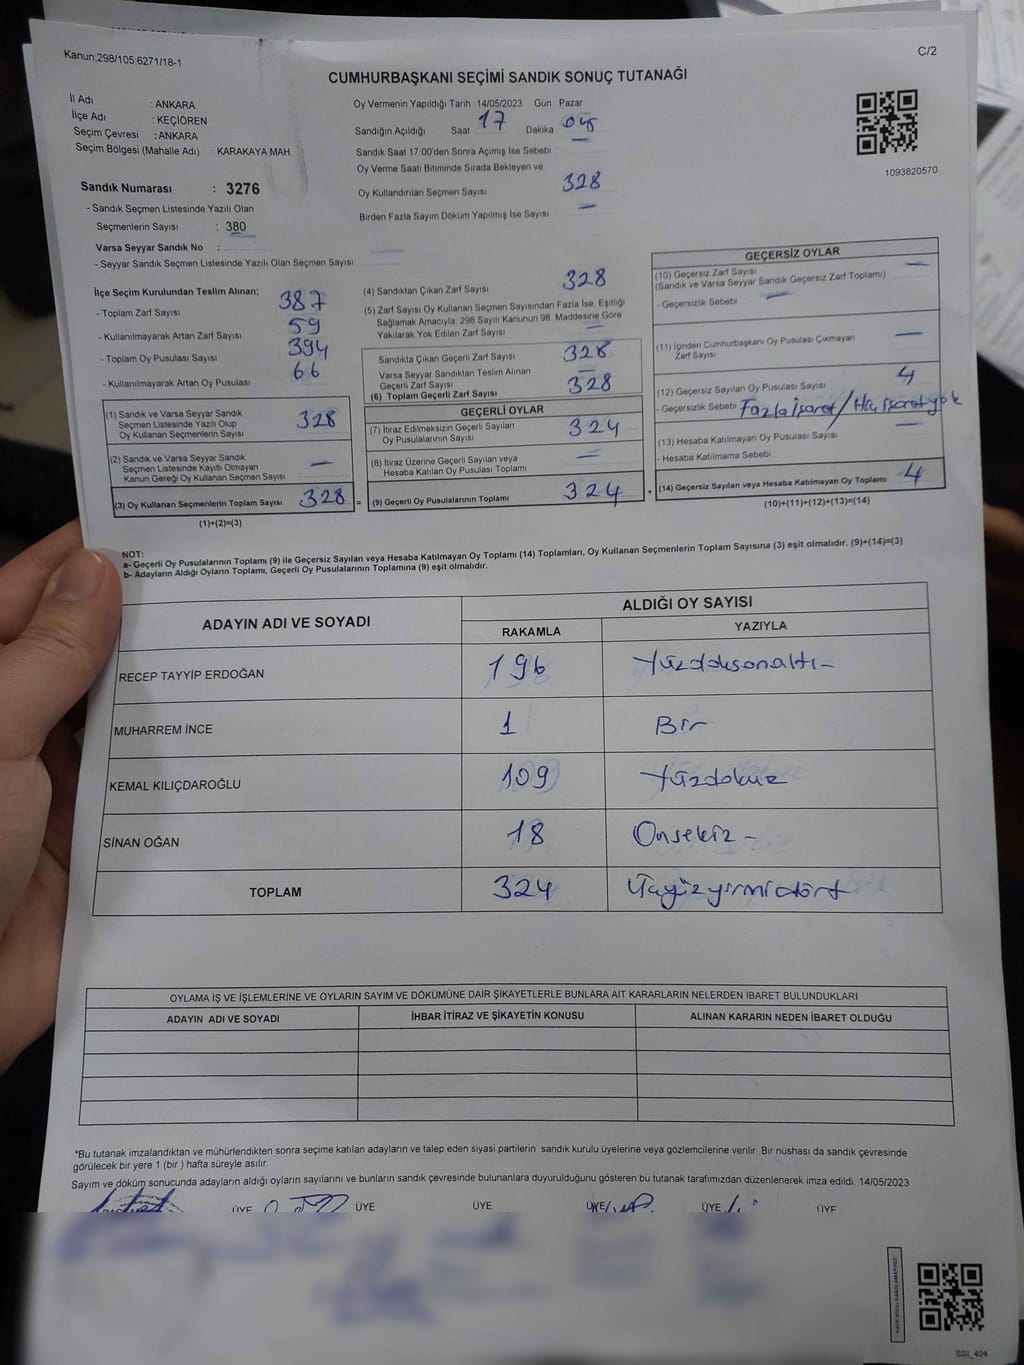 Kanun;298/105;6271/18-1
C/2
CUMHURBAŞKANI SEÇİMİ SANDIK SONUÇ TUTANAĞI
İl Adı : ANKARA
İlçe Adı : KEÇİÖREN
Seçim Çevresi : ANKARA
Seçim Bölgesi (Mahalle Adı) : KARAKAYA MAH.
Sandık Numarası : 3276
- Sandık Seçmen Listesinde Yazılı Olan
Seçmenlerin Sayısı : 380
Varsa Seyyar Sandık No :
- Seyyar Sandık Seçmen Listesinde Yazılı Olan Seçmen Sayısı:
Oy Vermenin Yapıldığı Tarih : 14/05/2023 Gün : Pazar
Sandığın Açıldığı Saat 17 Dakika 05
Sandık Saat 17:00'den Sonra Açımış İse Sebebi :
Oy Verme Saati Bitiminde Sırada Bekleyen ve
Oy Kullandırılan Seçmen Sayısı 328
Birden Fazla Sayım Döküm Yapılmış İse Sayısı —
1093820570
İlçe Seçim Kurulundan Teslim Alınan;
- Toplam Zarf Sayısı 387
- Kullanılmayarak Artan Zarf Sayısı 59
- Toplam Oy Pusulası Sayısı 394
- Kullanılmayarak Artan Oy Pusulası 66
(1) Sandık ve Varsa Seyyar Sandık
Seçmen Listesinde Yazılı Olup
Oy Kullanan Seçmenlerin Sayısı 328
(2) Sandık ve Varsa Seyyar Sandık
Seçmen Listesinde Kayıtlı Olmayan
Kanun Gereği Oy Kullanan Seçmen Sayısı —
(3) Oy Kullanan Seçmenlerin Toplam Sayısı 328 =
(1)+(2)=(3)
(4) Sandıktan Çıkan Zarf Sayısı 328
(5) Zarf Sayısı Oy Kullanan Seçmen Sayısından Fazla İse, Eşitliği
Sağlamak Amacıyla; 298 Sayılı Kanunun 98. Maddesine Göre
Yakılarak Yok Edilen Zarf Sayısı —
Sandıkta Çıkan Geçerli Zarf Sayısı 328
Varsa Seyyar Sandıktan Teslim Alınan
Geçerli Zarf Sayısı —
(6) Toplam Geçerli Zarf Sayısı 328
GEÇERLİ OYLAR
(7) İtiraz Edilmeksizin Geçerli Sayılan
Oy Pusulalarının Sayısı 324
(8) İtiraz Üzerine Geçerli Sayılan veya
Hesaba Katılan Oy Pusulası Toplamı —
(9) Geçerli Oy Pusulalarının Toplamı 324 +
GEÇERSİZ OYLAR
(10) Geçersiz Zarf Sayısı
(Sandık ve Varsa Seyyar Sandık Geçersiz Zarf Toplamı) —
- Geçersizlik Sebebi : —
(11) İçinden Cumhurbaşkanı Oy Pusulası Çıkmayan
Zarf Sayısı —
(12) Geçersiz Sayılan Oy Pusulası Sayısı 4
- Geçersizlik Sebebi : Fazla işaret / Hiç işaret yok
(13) Hesaba Katılmayan Oy Pusulası Sayısı —
- Hesaba Katılmama Sebebi :
(14) Geçersiz Sayılan veya Hesaba Katılmayan Oy Toplamı 4
(10)+(11)+(12)+(13)=(14)
NOT:
a- Geçerli Oy Pusulalarının Toplamı (9) ile Geçersiz Sayılan veya Hesaba Katılmayan Oy Toplamı (14) Toplamları, Oy Kullanan Seçmenlerin Toplam Sayısına (3) eşit olmalıdır. (9)+(14)=(3)
b- Adayların Aldığı Oyların Toplamı, Geçerli Oy Pusulalarının Toplamına (9) eşit olmalıdır.
ADAYIN ADI VE SOYADI ALDIĞI OY SAYISI
RAKAMLA YAZIYLA
RECEP TAYYİP ERDOĞAN 196 Yüzdoksanaltı -
MUHARREM İNCE 1 Bir
KEMAL KILIÇDAROĞLU 109 Yüzdokuz
SİNAN OĞAN 18 Onsekiz -
TOPLAM 324 Üçyüzyirmidört
OYLAMA İŞ VE İŞLEMLERİNE VE OYLARIN SAYIM VE DÖKÜMÜNE DAİR ŞİKAYETLERLE BUNLARA AİT KARARLARIN NELERDEN İBARET BULUNDUKLARI
ADAYIN ADI VE SOYADI İHBAR İTİRAZ VE ŞİKAYETİN KONUSU ALINAN KARARIN NEDEN İBARET OLDUĞU
*Bu tutanak imzalandıktan ve mühürlendikten sonra seçime katılan adayların ve talep eden siyasi partilerin sandık kurulu üyelerine veya gözlemcilerine verilir. Bir nüshası da sandık çevresinde
görülecek bir yere 1 (bir ) hafta süreyle asılır.
Sayım ve döküm sonucunda adayların aldığı oyların sayılarını ve bunların sandık çevresinde bulunanlara duyurulduğunu gösteren bu tutanak tarafımızdan düzenlenerek imza edildi. 14/05/2023
ÜYE ÜYE ÜYE ÜYE ÜYE ÜYE
SSI_404